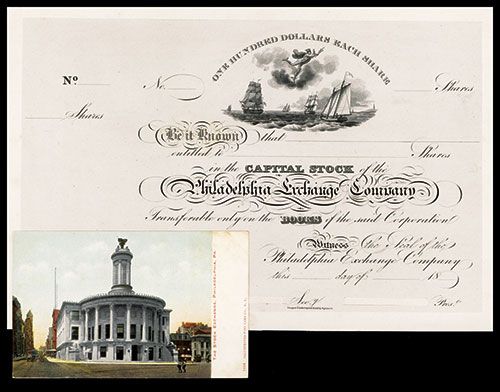 ONE HUNDRED DOLLARS EACH SHARE
No. No. Shares
Shares
Be it Known that
entitled to Shares
in the CAPITAL STOCK of the
Philadelphia Exchange Company
Transferable only on the BOOKS of the said Corporation
Witness The Seal of the
Philadelphia Exchange Company
this day of 18
Sec.y Pres.t
THE STOCK EXCHANGE, PHILADELPHIA, PA.